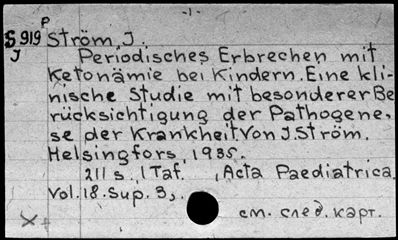 -1-
P
S 919 Ström, J.
J
Periodisches Erbrechen mit
Ketonämie bei Kindern. Eine kli-
nische Studie mit besonderer Be
rücksichtigung der Pathogene,
se der Krankheit. Von J. Ström.
Helsingfors, 1935.
211 s., 1 Taf. , (Acta Paediatrica.
Vol. 18. Sup. 3).
см. след. карт.